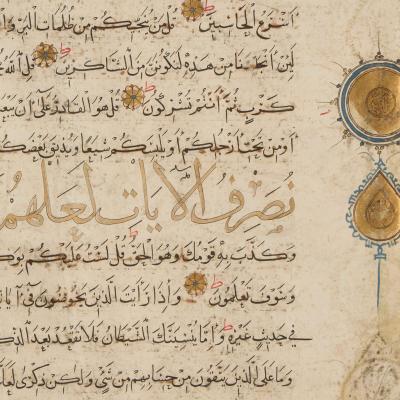 اسرع الحاسبين قل من ينجيكم من ظلمات البر وا
لئن انجيتنا من هذه لنكونن من الشاكرين قل الله
كرب ثم انتم تشركون قل هو القادر على ان يبع
او من تحت ارجلكم او يلبسكم شيعا ويذيق بعضكم
نصرف الآيات لعلهم
وكذب به قومك وهو الحق قل لست عليكم بوك
وسوف تعلمون واذا رايت الذين يخوضون في ايا
في حديث غيره واما ينسينك الشيطان فلا تقعد بعد الذك
وما على الذين يتقون من حسابهم من شيء ولكن ذكرى لعل